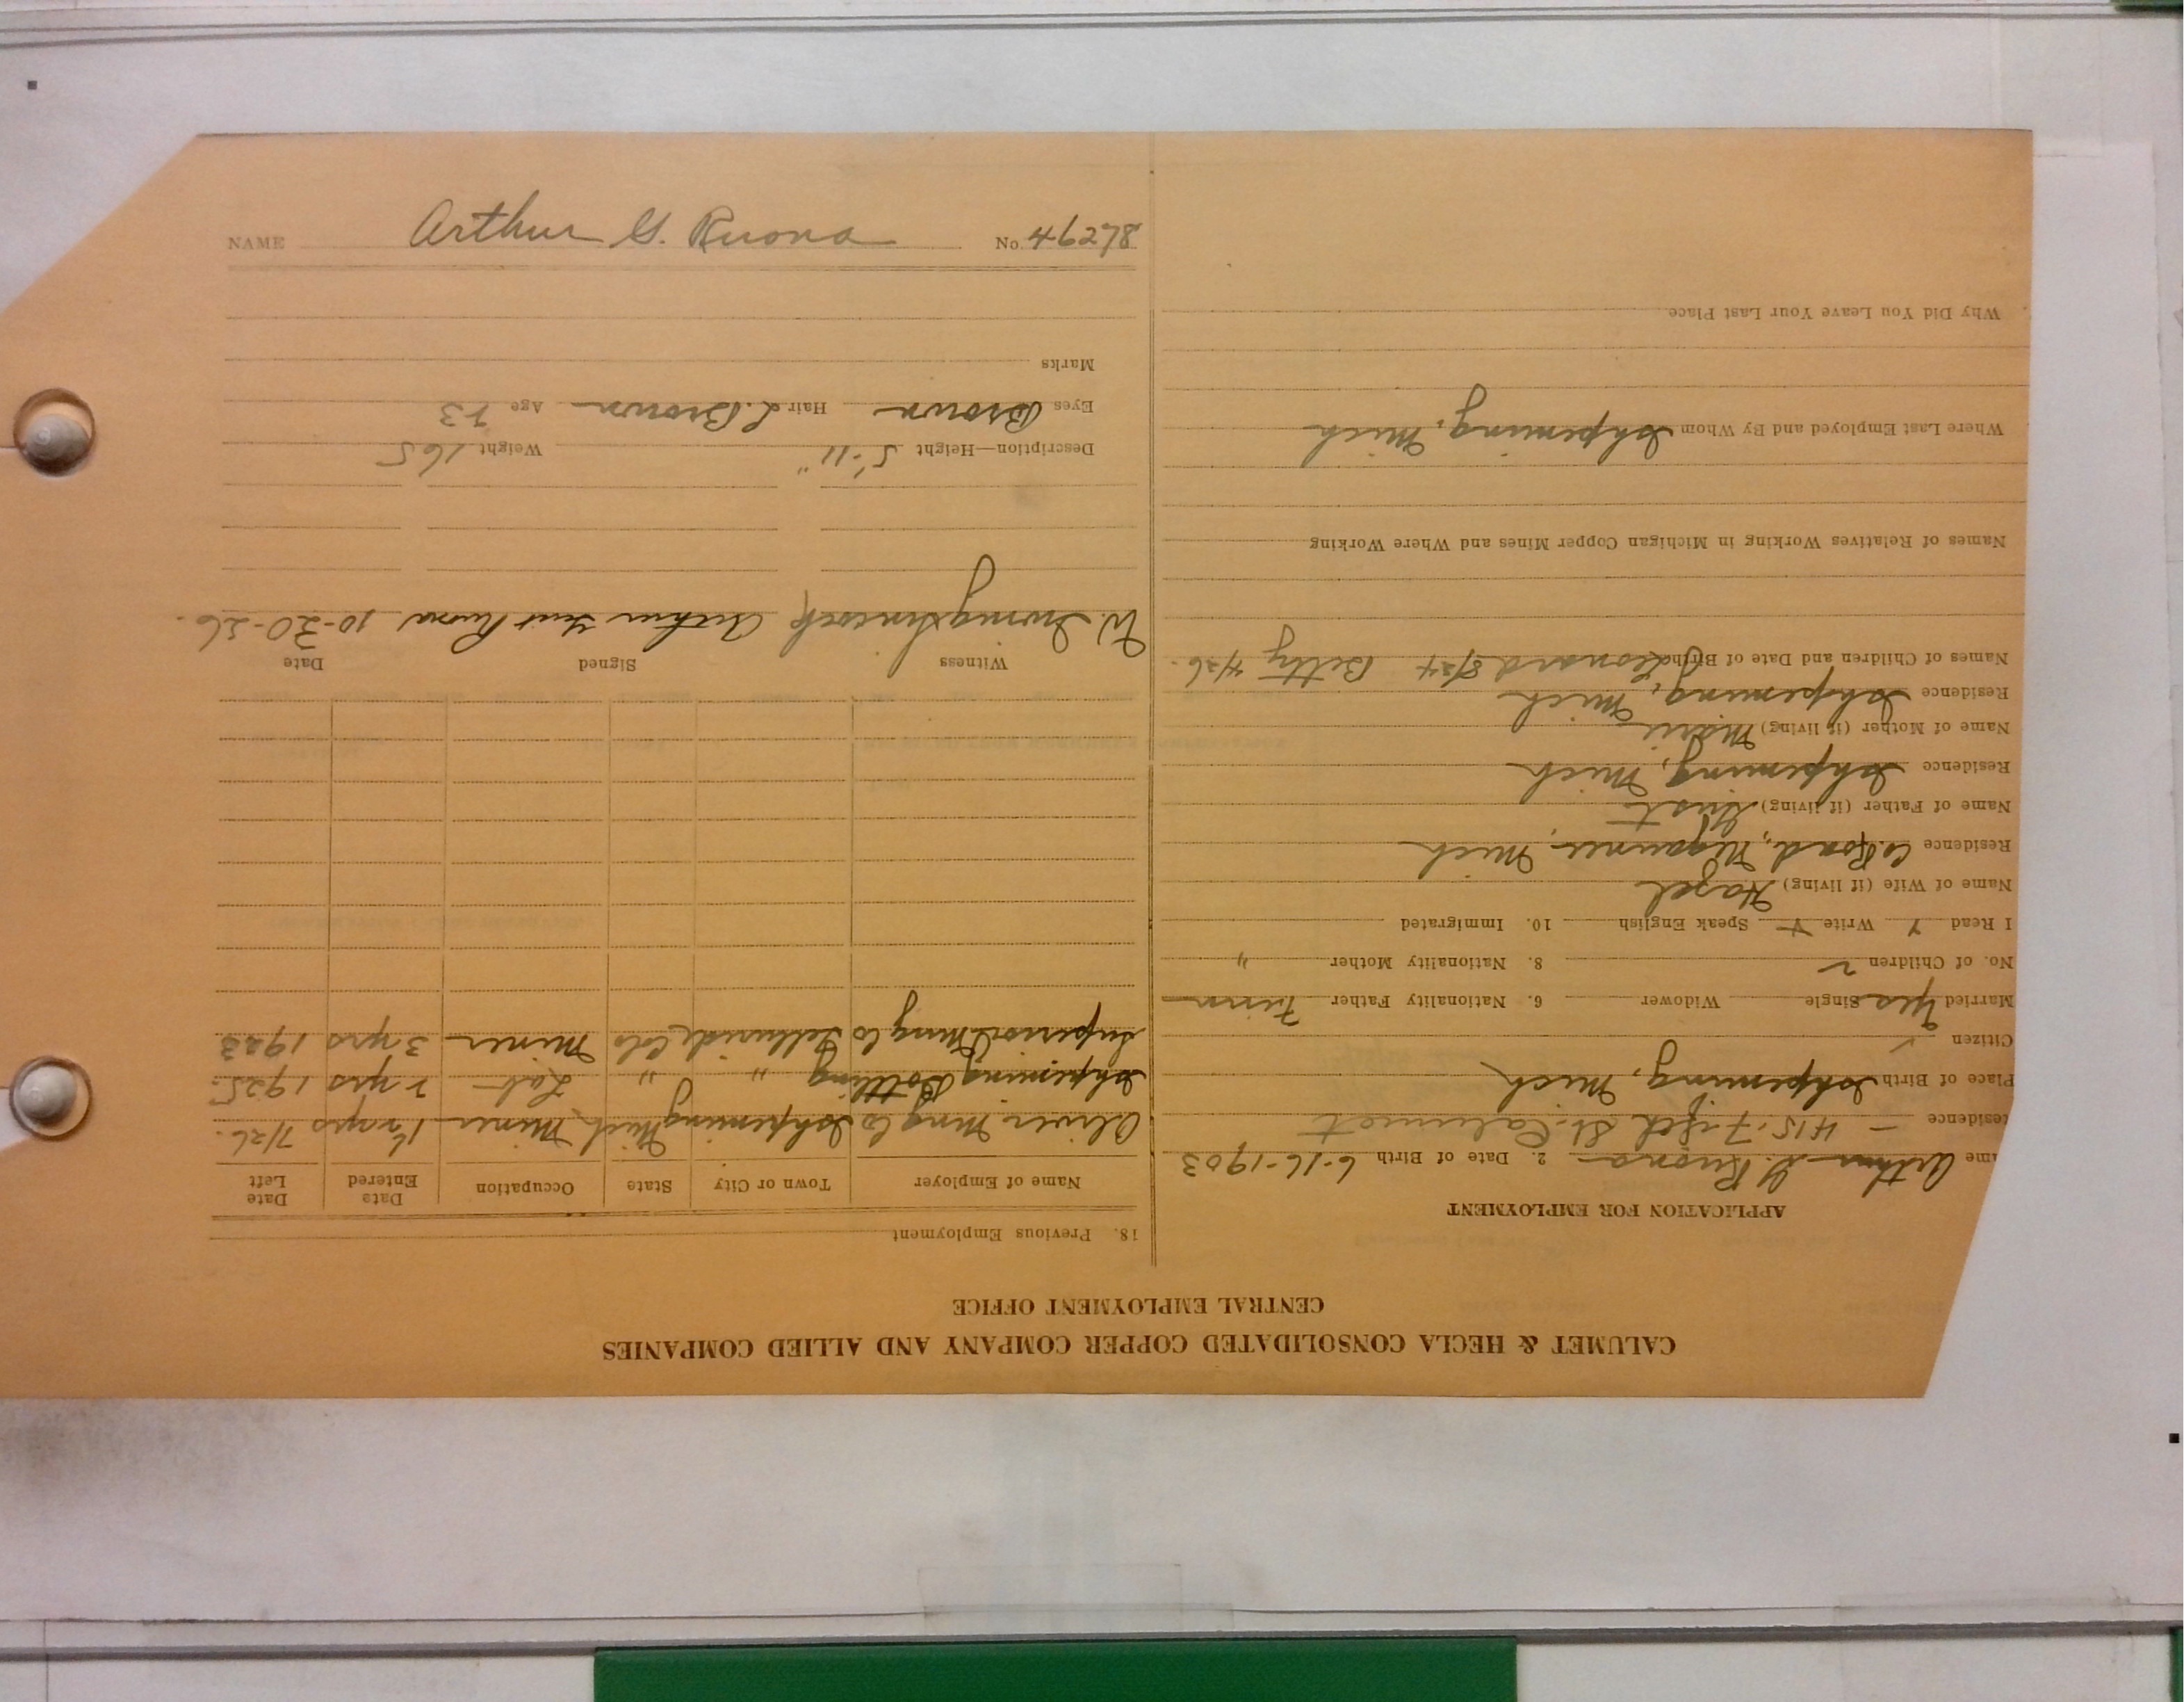 CALUMET & HECLA CONSOLIDATED COPPER COMPANY AND ALLIED COMPANIES
CENTRAL EMPLOYMENT OFFICE
APPLICATION FOR EMPLOYMENT
ame Arthur G. Ruona 2. Date of Birth 6-16-1903
esidence — 415. Fifth St. Calumet
Place of Birth Ishpeming, Mich
Citizen ✓
Married Yes Single Widower 6. Nationality Father Finn
No. of Children 2 8. Nationality Mother "
I Read Y Write Y Speak English 10. Immigrated
Name of Wife (if living) Hazel
Residence Co. Road, Negaunee, Mich
Name of Father (if living) Gust
Residence Ishpeming, Mich
Name of Mother (if living) Marie
Residence Ishpeming, Mich
Names of Children and Date of Birth Leonard 8/24 Betty 4/26.
Names of Relatives Working in Michigan Copper Mines and Where Working
Where Last Employed and By Whom Ishpeming, Mich
Why Did You Leave Your Last Place
18. Previous Employment
Name of Employer Town or City State Occupation Date Entered Date Left
Oliver Mng Co Ishpeming Mich Miner 1½ yrs 7/26.
Ishpeming Bottling " " Lab 2 yrs 1925.
Superior Mng Co Telluride Colo Miner 3 yrs 1923
Witness Signed Date
W. Arthur Ruona 10-20-26.
Description—Height 5'-11" Weight 165
Eyes Brown Hair L. Brown Age 23
Marks
NAME Arthur G. Ruona No. 46278